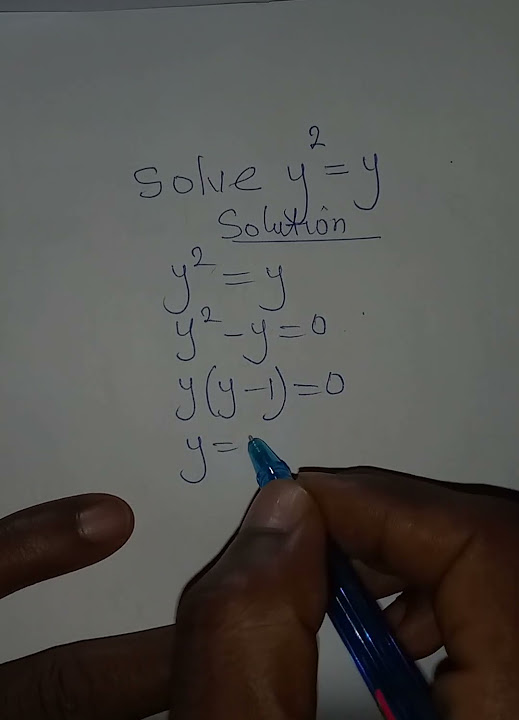 Solve y² = y
Solution
y² = y
y² - y = 0
y(y - 1) = 0
y =